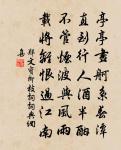 亭亭畫舸系春潭
直到行人酒半酣
不管煙波與風雨
載將離恨過江南
鄭文寶柳枝詞詞典網